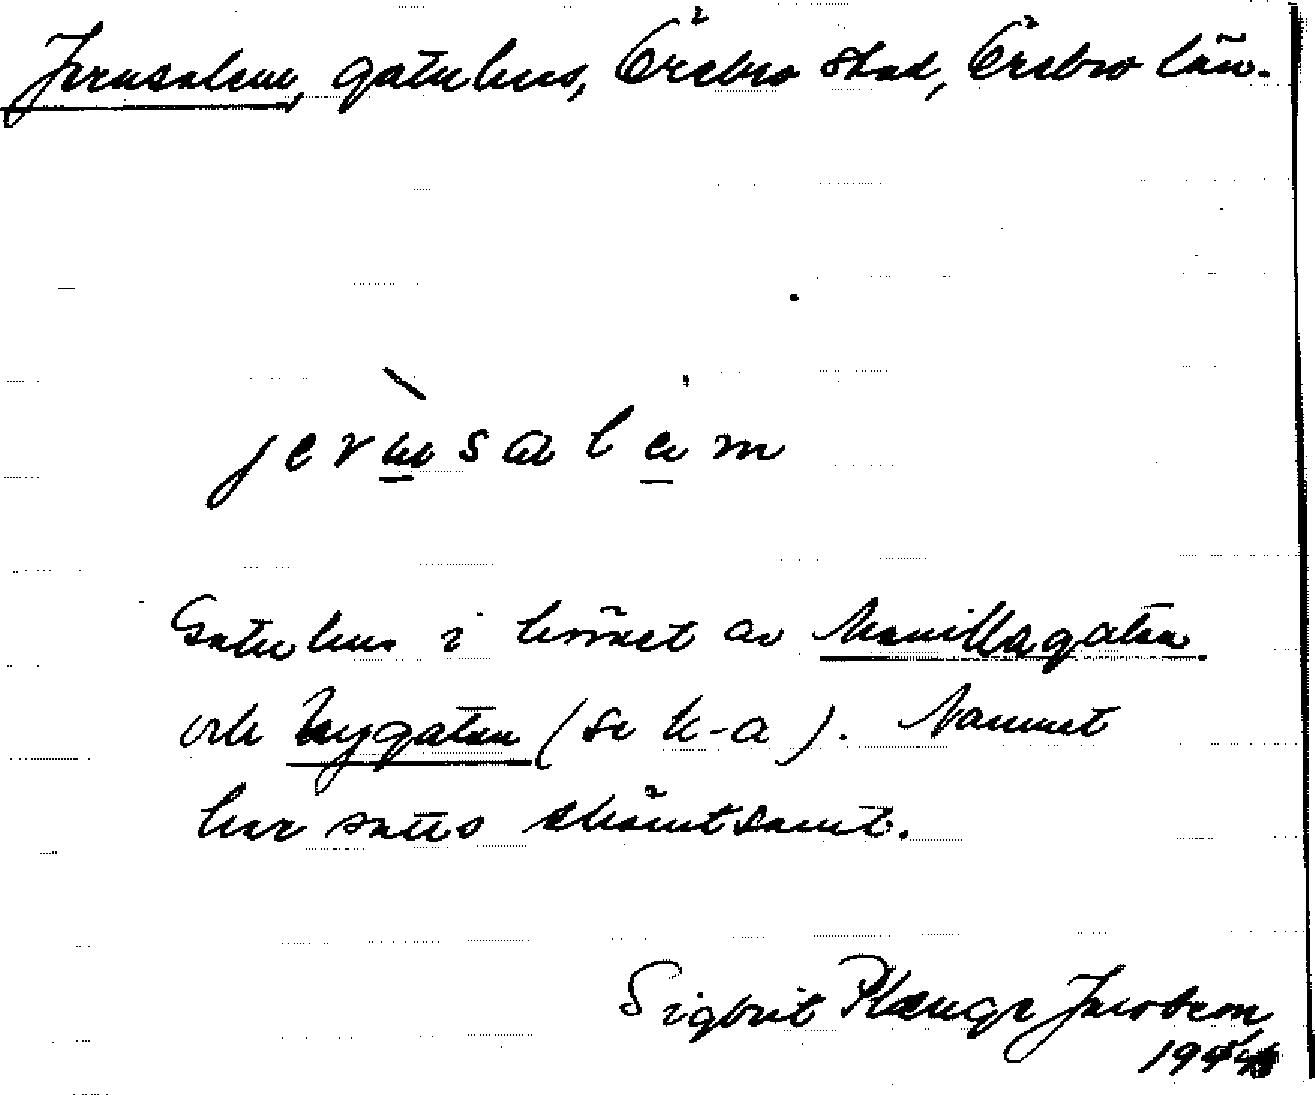 Jerusalem, gatuhus, Örebro stad, Örebro län.
jerusalem
Gatuhus i hörnet av Manillagatan
och Nygatan (se k-a). Namnet
har satts skämtsamt.
Sigbrit Plænge Jacobson